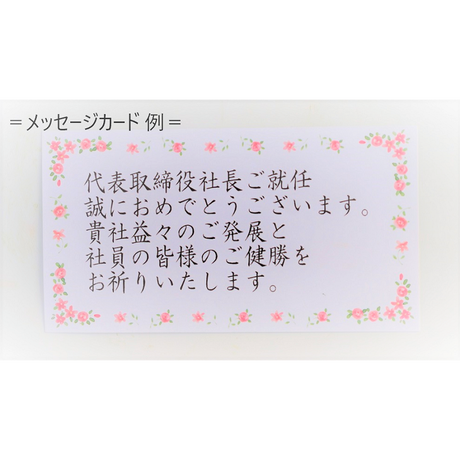 ＝メッセージカード 例＝
代表取締役社長ご就任
誠におめでとうございます。
貴社益々のご発展と
社員の皆様のご健勝を
お祈りいたします。